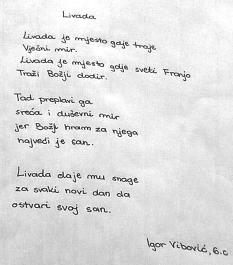 Livada
Livada je mjesto gdje traje
Vječni mir.
Livada je mjesto gdje sveti Franjo
Traži Božji dodir.
Tad preplavi ga
sreća i duševni mir
jer Božji hram za njega
najveći je san.
Livada daje mu snage
za svaki novi dan da
ostvari svoj san.
Igor Vibović, 6.c